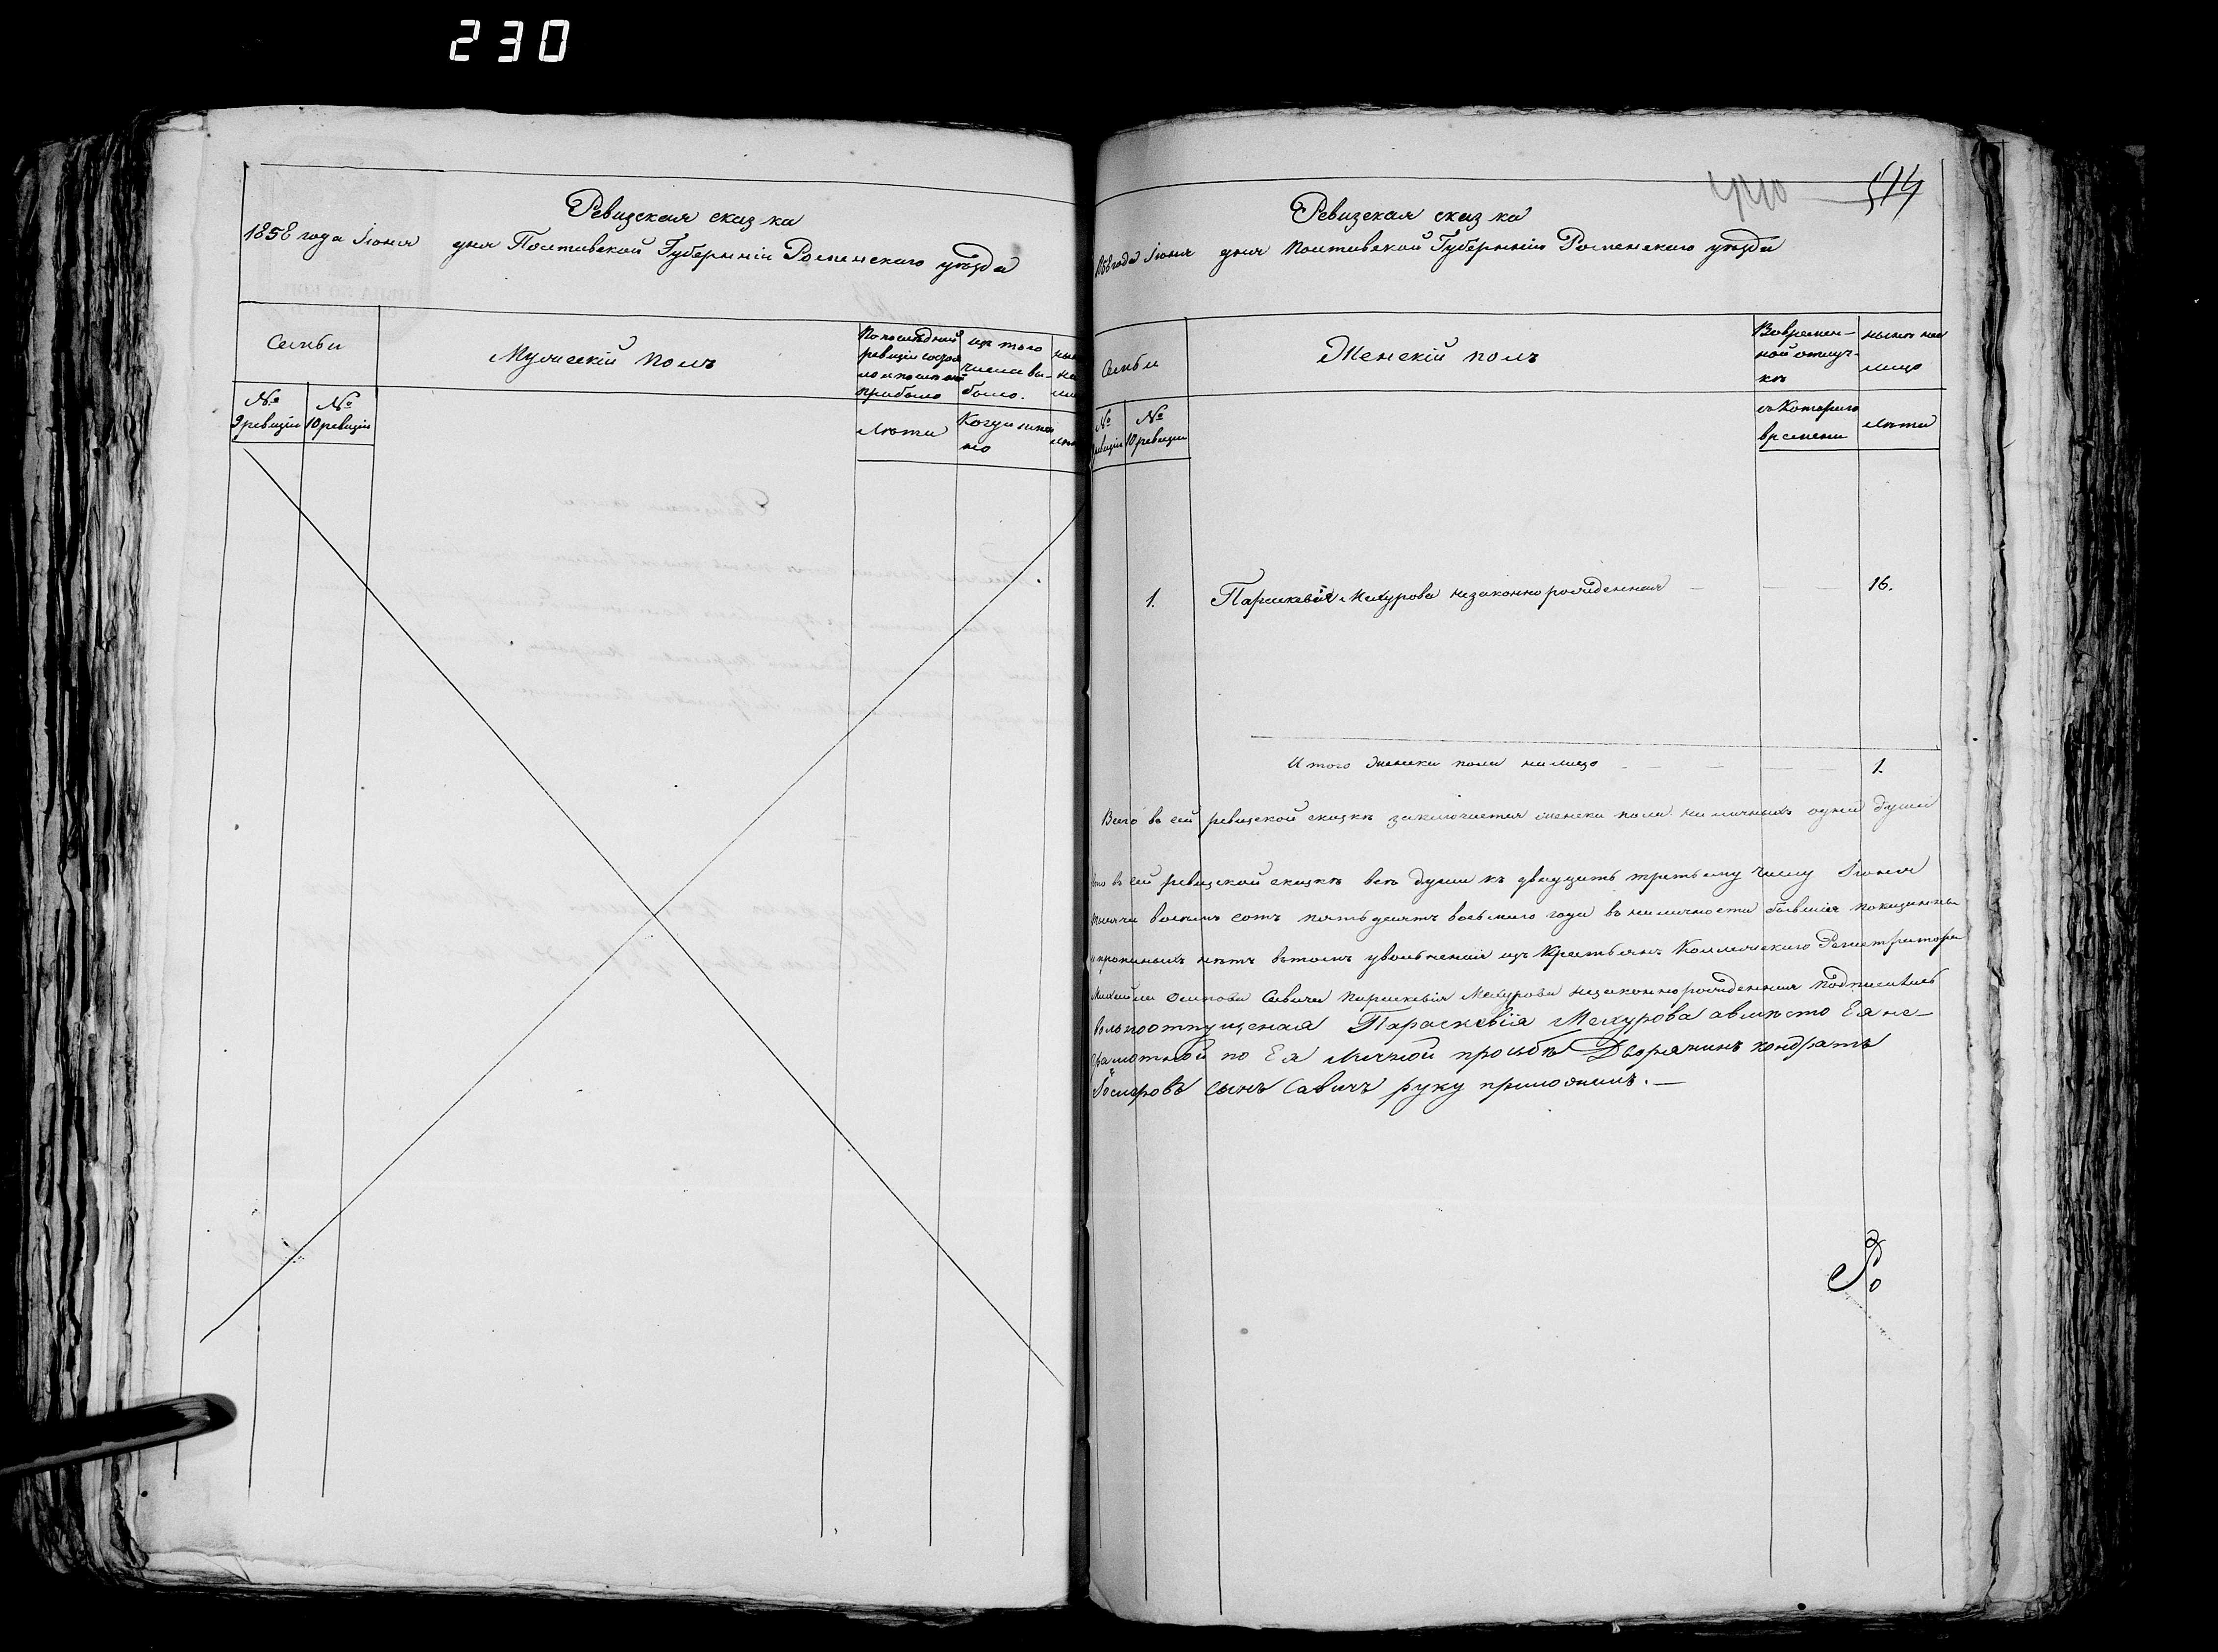 230
Ревизская сказка
1858 года Іюня дня Полтавской Губерніи Роменскаго уѣзда
Семьи
Мужескій полъ
По последней ревизіи состояло и после того прибыло
изъ того числа вы-
было.
№ 9 ревизіи
№ 10 ревизіи
Лѣта
Когда имен
но
514
Ревизская сказка
1858 года Іюня дня Полтавской Губерніи Роменскаго уѣзда
Семьи
Женскій полъ
Во времен-
ной отлуч-
кѣ
ныне на
лицо
№ ревизіи
№ 10 ревизіи
съ Котораго
времени
лѣта
1. Параскевія Мехурова незаконно рожденная 16.
Итого женска пола на лицо 1.
Всего въ сей ревизской сказкѣ заключается женска пола наличныхъ одна душа
Что въ сей ревизской сказкѣ всѣ души къ двадцать третьему числу Іюня
тысяча восемь сотъ пятьдесятъ восьмаго года въ наличности бывшія показанны
и прописныхъ нѣтъ въ томъ уволненная изъ Крестьянъ Коллежскаго Регистратора
Михайла Осипова Савича Параскевія Мехурова незаконнорожденная подписалась
вольноотпущеная Параскевіія Мехурова авместо Ея не-
грамотной по Ея личной прозбѣ Дворянинъ кондратъ
сынъ Савичъ руку приложилъ.